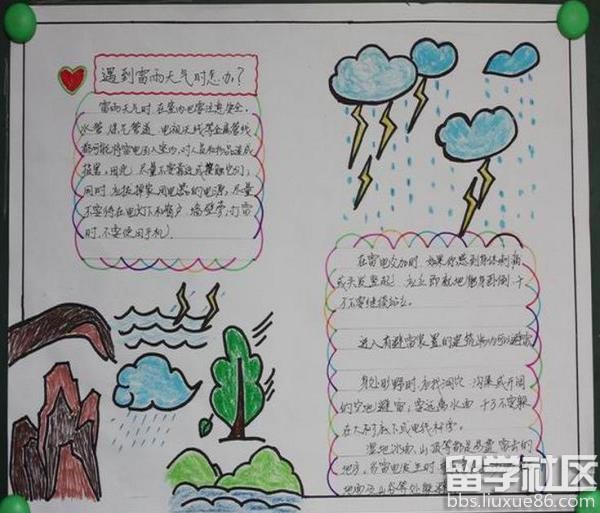 遇到雷雨天气时怎办？
雷雨天气时，在室内也要注意安全，
水管、煤气管道、电视天线等金属管线
都可能将雷电引入室内，对人员和物品造成
损害，因此，尽量不要靠近或摸触它们，
同时，应拔掉家用电器的电源，尽量
不要待在电灯下和窗户、墙壁旁，打雷
时，不要使用手机。
在雷电交加时，如果你感到身体刺痛
或头发竖起，应立即就地蹲身卧倒，千
万不要继续站立。
进入有避雷装置的建筑物内可避雷
身处野外，应找洞穴、沟渠或开阔
的空地避雷，要远离水面，千万不要躲
在大树底下或电线杆旁。
湿地水面、山顶等都是易遭雷击的
地方，
留学社区
bbs.liuxue86.com